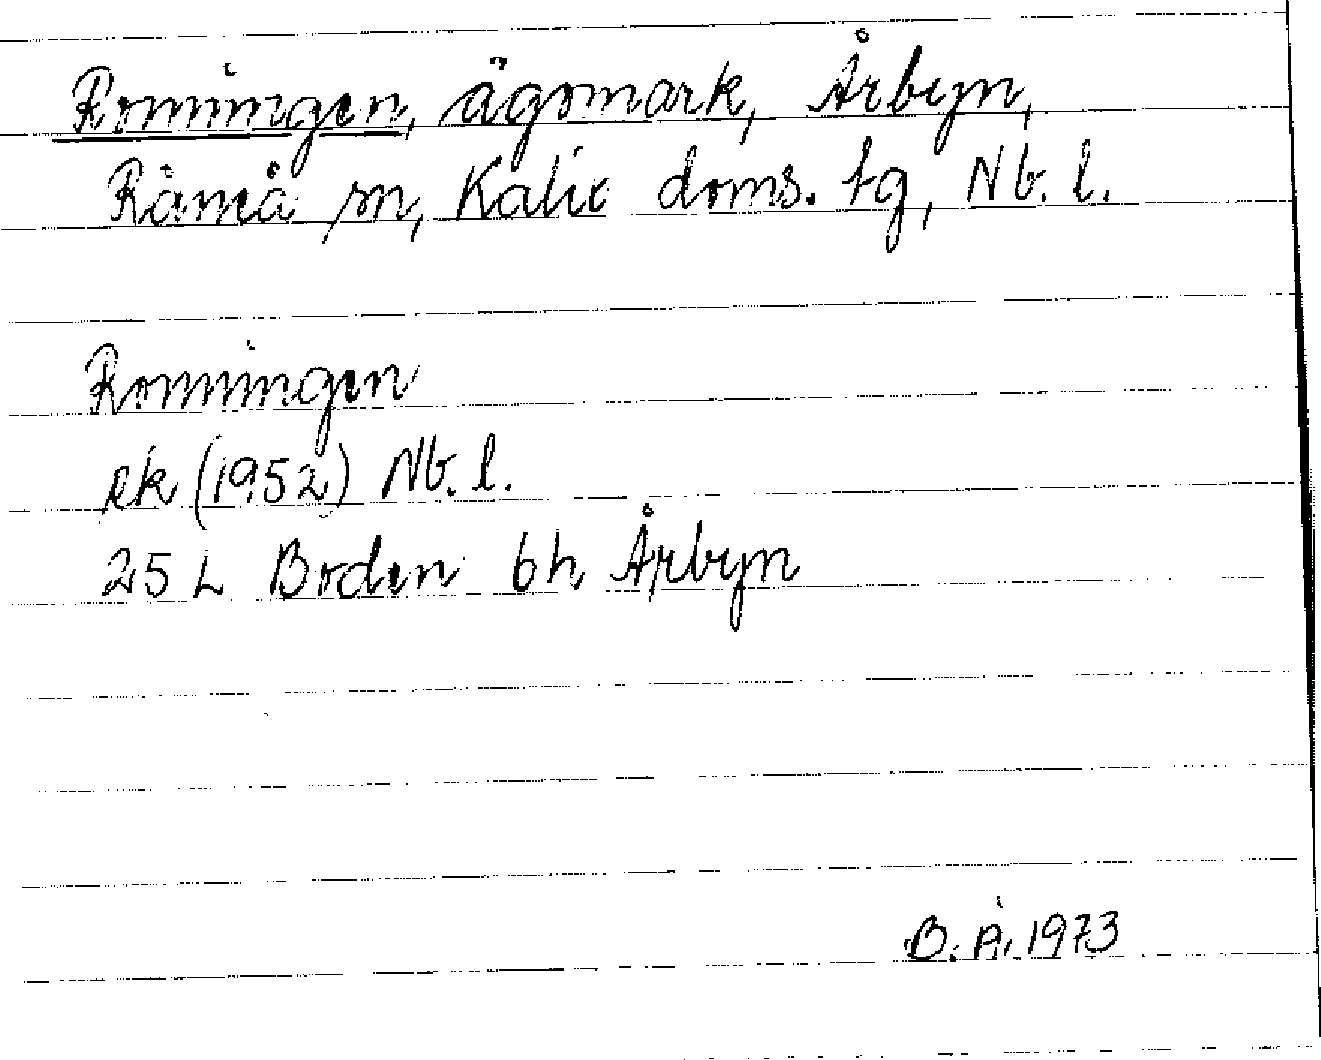 Ronningen, ägomark, Årbyn,
Råneå sn, Kalix doms. tg, Nb. l.
Ronningen
ek (1952) Nb. l.
25 L Boden 6h Årbyn
B. Å. 1973